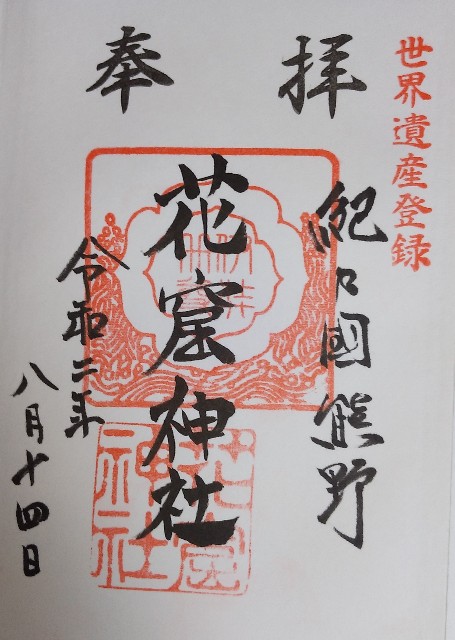 世界遺産登録
奉拝
紀乃國熊野
花窟神社
令和二年
八月十四日
花窟
神社